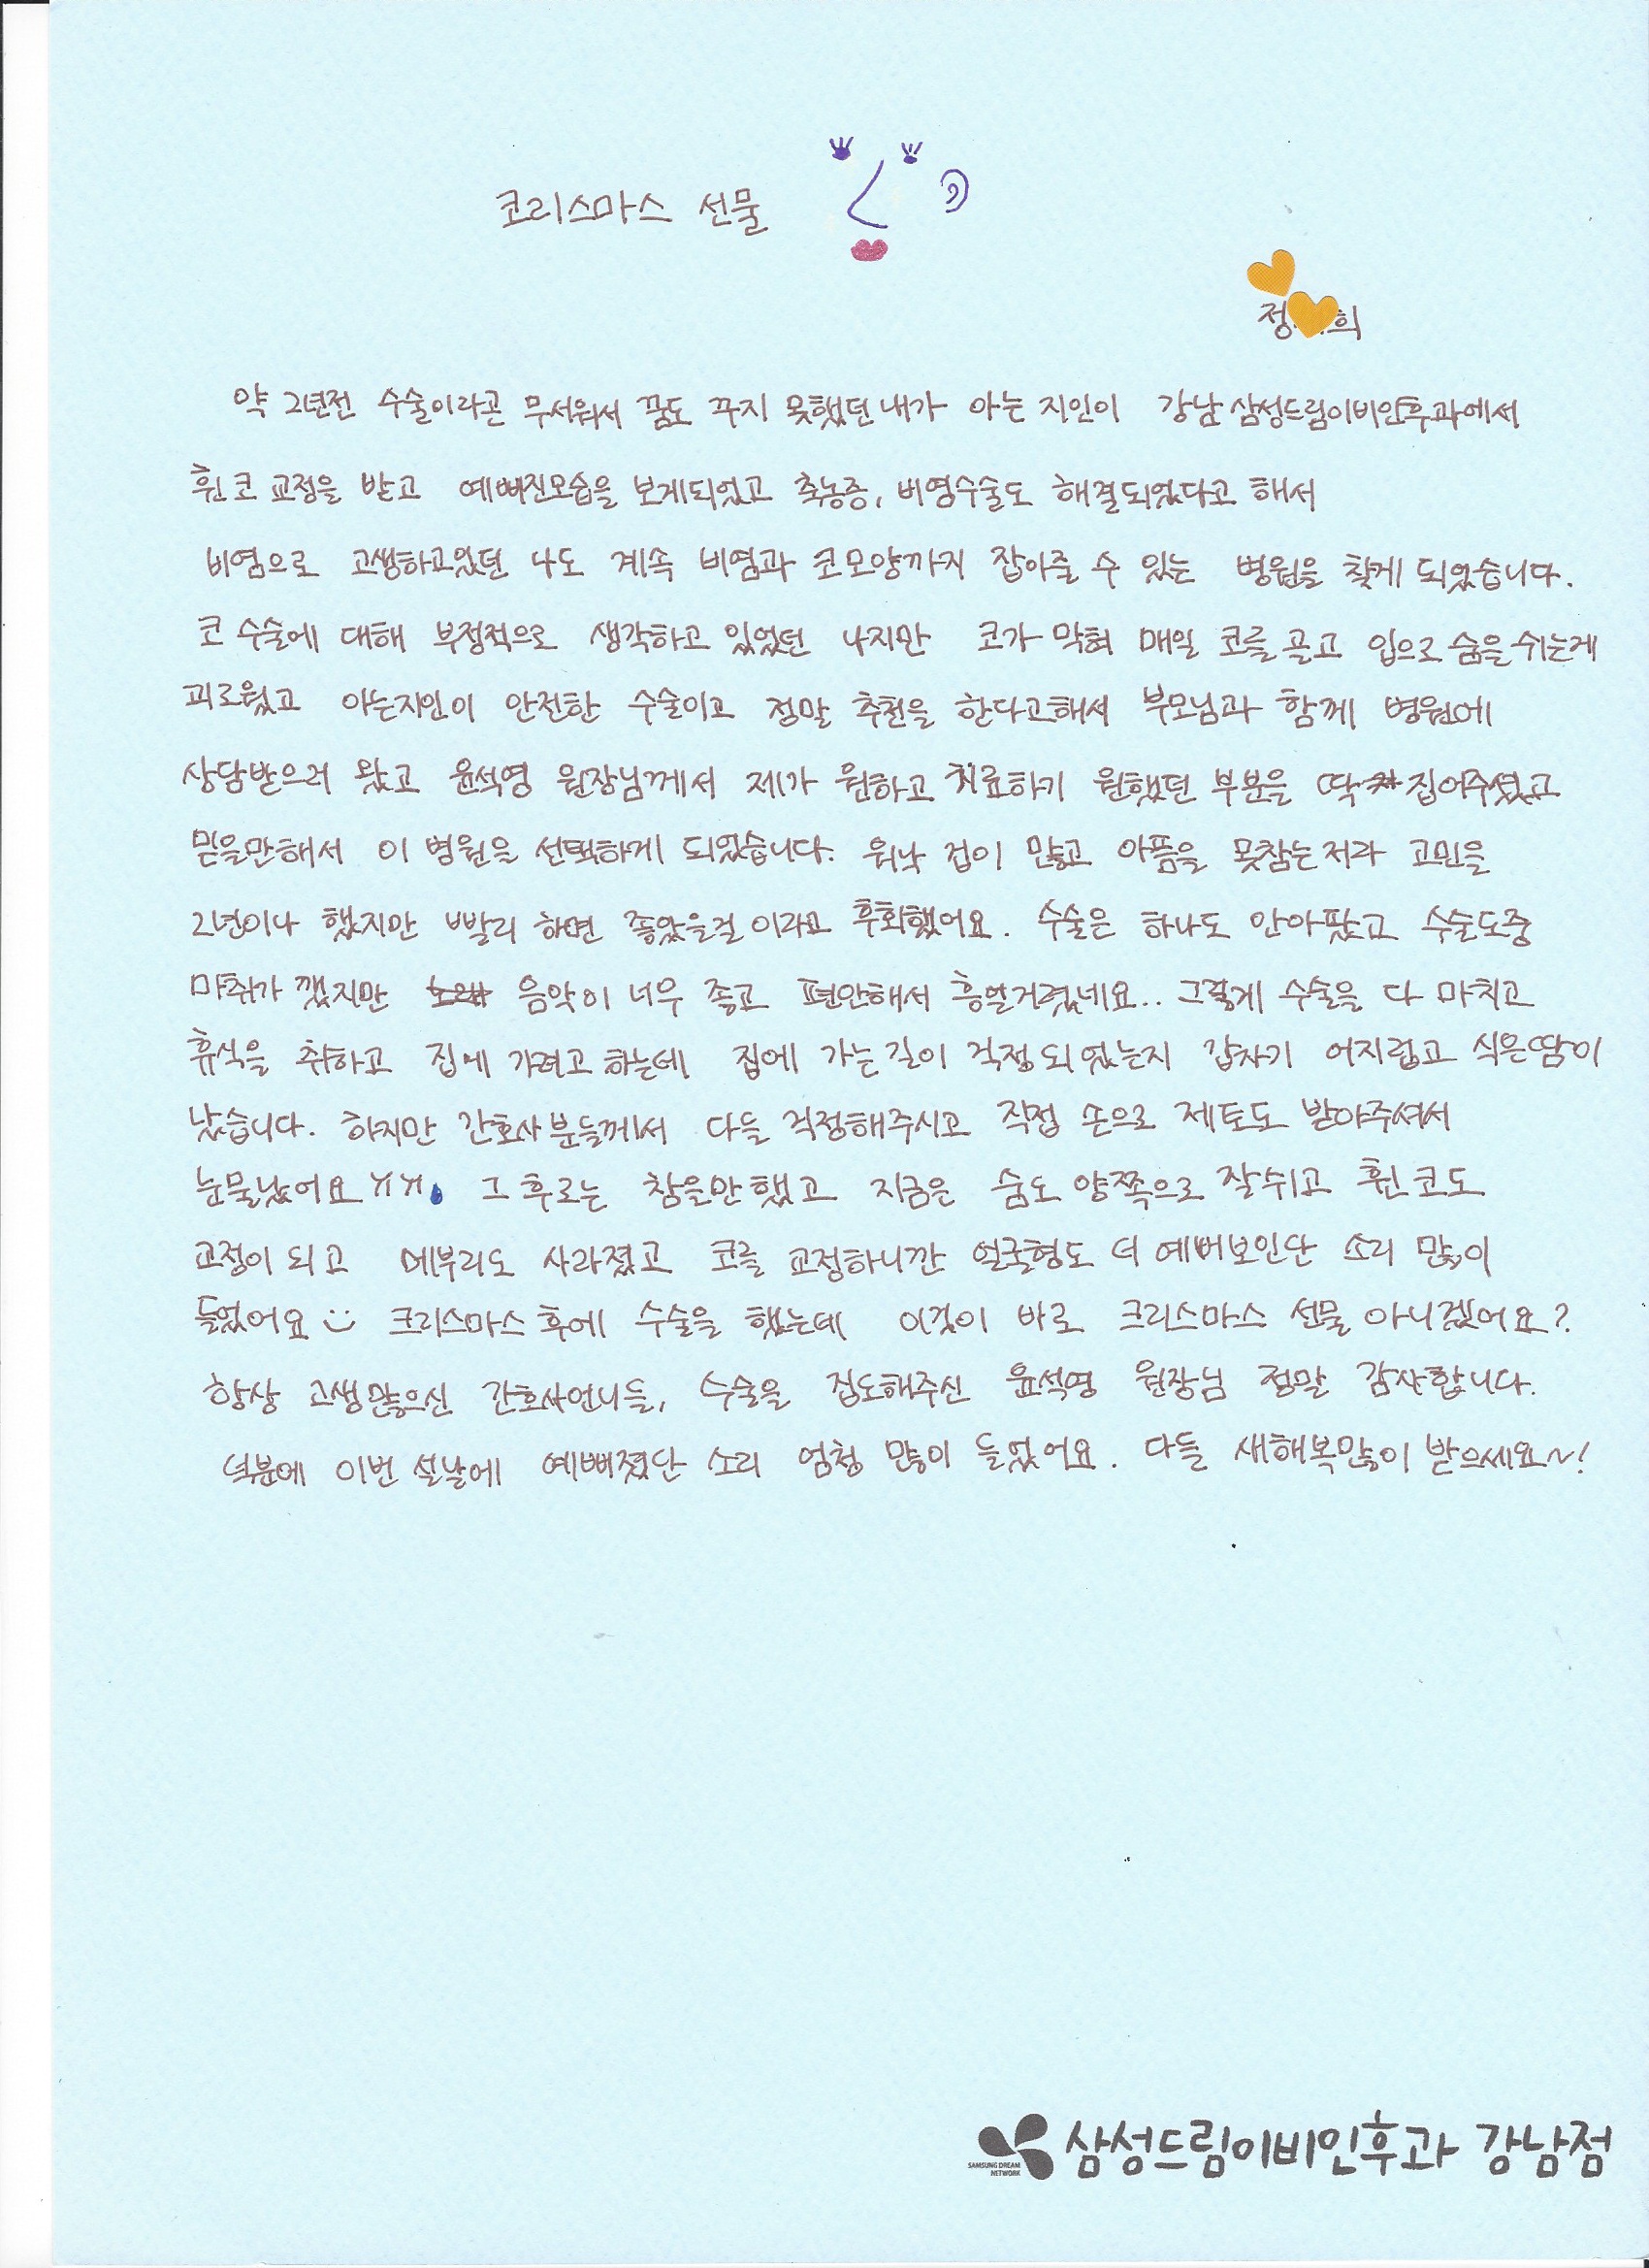 코리스마스 선물
정 희
약 2년전 수술이라곤 무서워서 꿈도 꾸지 못했던 내가 아는 지인이 강남 삼성드림이비인후과에서
휜 코 교정을 받고 예뻐진모습을 보게되었고 축농증, 비염수술도 해결되었다고 해서
비염으로 고생하고있던 나도 계속 비염과 코모양까지 잡아줄 수 있는 병원을 찾게 되었습니다.
코 수술에 대해 부정적으로 생각하고 있었던 나지만 코가 막혀 매일 코를 골고 입으로 숨을 쉬는게
괴로웠고 아는지인이 안전한 수술이고 정말 추천을 한다고해서 부모님과 함께 병원에
상담받으러 왔고 윤석영 원장님께서 제가 원하고 치료하기 원했던 부분을 딱 집어주셨고
믿을만해서 이 병원을 선택하게 되었습니다. 워낙 겁이 많고 아픔을 못참는저라 고민을
2년이나 했지만 빨리 하면 좋았을걸 이라고 후회했어요. 수술은 하나도 안아팠고 수술도중
마취가 깼지만 음악이 너무 좋고 편안해서 흥얼거렸네요.. 그렇게 수술을 다 마치고
휴식을 취하고 집에 가려고 하는데 집에 가는 길이 걱정되었는지 갑자기 어지럽고 식은땀이
났습니다. 하지만 간호사분들께서 다들 걱정해주시고 직접 손으로 제토도 받아주셔서
눈물났어요ㅠㅠ 그 후로는 참을만했고 지금은 숨도 양쪽으로 잘쉬고 휜 코도
교정이 되고 메부리도 사라졌고 코를 교정하니깐 얼굴형도 더 예뻐보인단 소리 많이
들었어요 크리스마스 후에 수술을 했는데 이것이 바로 크리스마스 선물 아니겠어요?
항상 고생많으신 간호사언니들, 수술을 집도해주신 윤석영 원장님 정말 감사합니다.
덕분에 이번 설날에 예뻐졌단 소리 엄청 많이 들었어요. 다들 새해복많이 받으세요~!
SAMSUNG DREAM NETWORK 삼성드림이비인후과 강남점